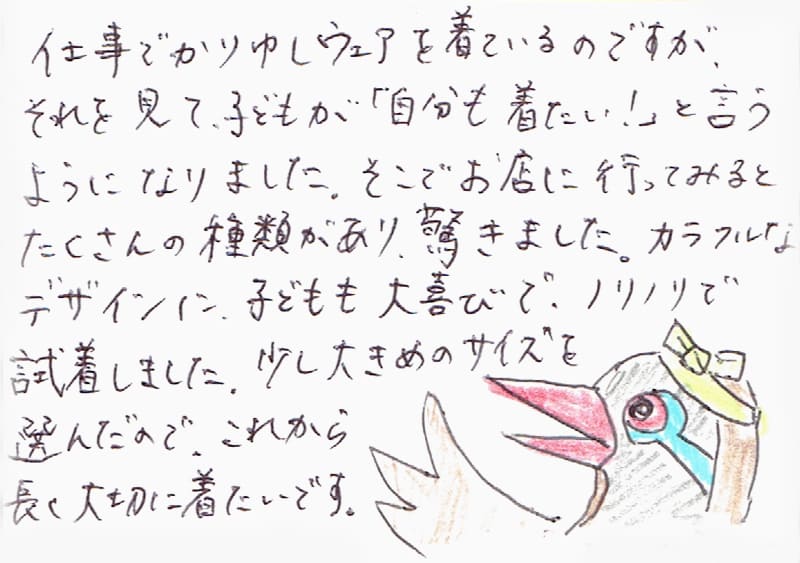 仕事でかりゆしウェアを着ているのですが、
それを見て、子どもが「自分も着たい!」と言う
ようになりました。そこでお店に行ってみると
たくさんの種類があり、驚きました。カラフルな
デザインに、子どもも大喜びで、ノリノリで
試着しました。少し大きめのサイズを
選んだので、これから
長く大切に着たいです。